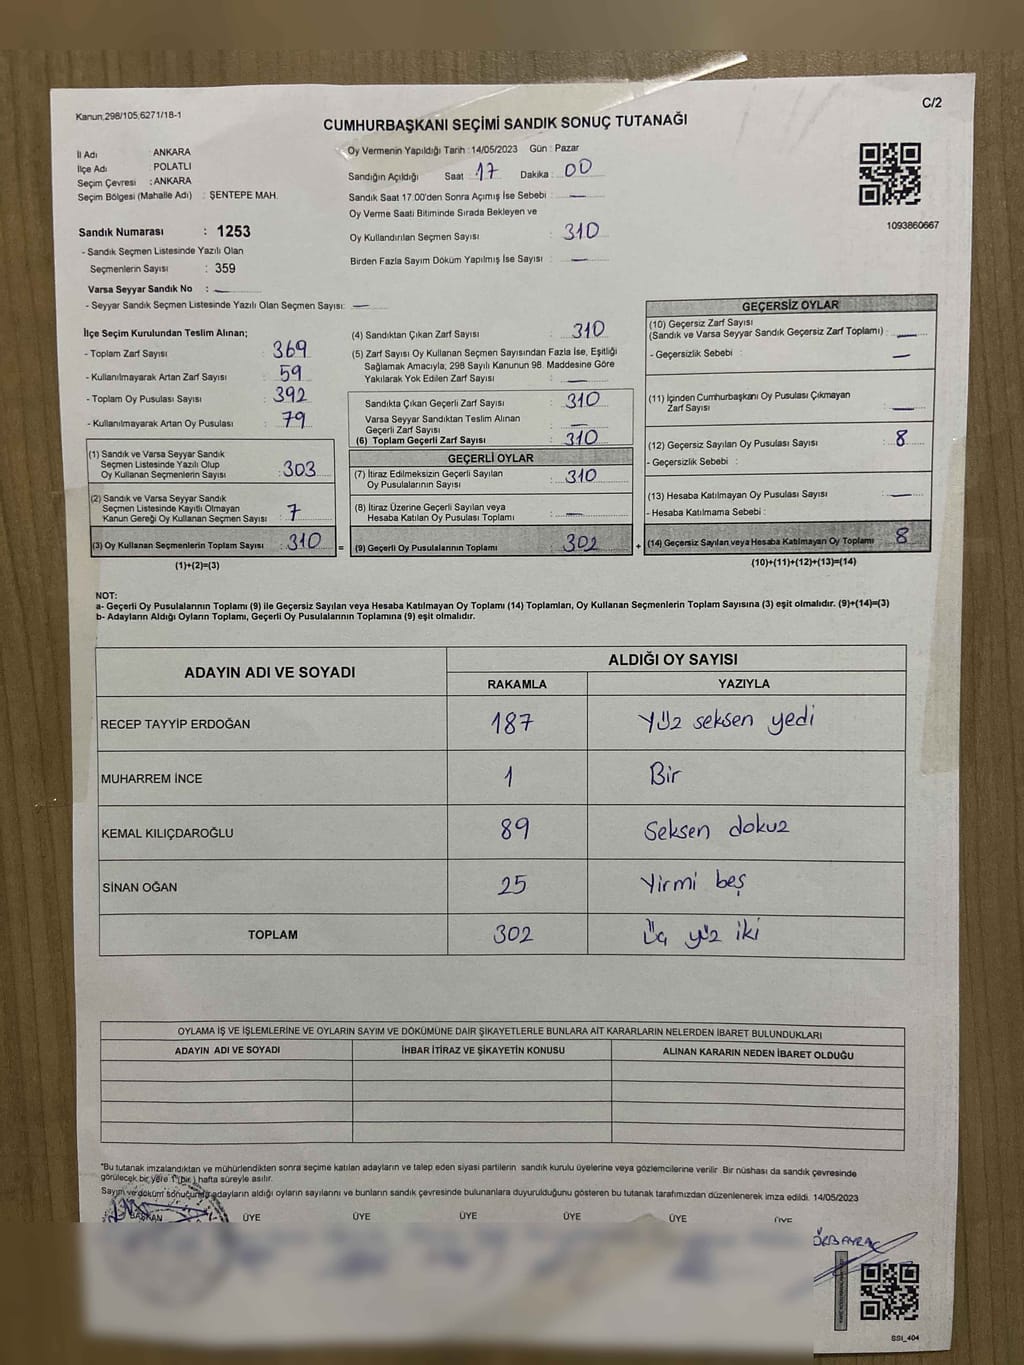 Kanun,298/105,6271/18-1
C/2
CUMHURBAŞKANI SEÇİMİ SANDIK SONUÇ TUTANAĞI
İl Adı : ANKARA
İlçe Adı : POLATLI
Seçim Çevresi : ANKARA
Seçim Bölgesi (Mahalle Adı) : ŞENTEPE MAH.
Sandık Numarası : 1253
- Sandık Seçmen Listesinde Yazılı Olan
Seçmenlerin Sayısı : 359
Varsa Seyyar Sandık No : —
- Seyyar Sandık Seçmen Listesinde Yazılı Olan Seçmen Sayısı: —
Oy Vermenin Yapıldığı Tarih : 14/05/2023 Gün : Pazar
Sandığın Açıldığı Saat : 17 Dakika : 00
Sandık Saat 17.00'den Sonra Açımış İse Sebebi : —
Oy Verme Saati Bitiminde Sırada Bekleyen ve
Oy Kullandırılan Seçmen Sayısı : 310
Birden Fazla Sayım Döküm Yapılmış İse Sayısı : —
1093860667
İlçe Seçim Kurulundan Teslim Alınan;
- Toplam Zarf Sayısı : 369
- Kullanılmayarak Artan Zarf Sayısı : 59
- Toplam Oy Pusulası Sayısı : 392
- Kullanılmayarak Artan Oy Pusulası : 79
(1) Sandık ve Varsa Seyyar Sandık
Seçmen Listesinde Yazılı Olup
Oy Kullanan Seçmenlerin Sayısı : 303
(2) Sandık ve Varsa Seyyar Sandık
Seçmen Listesinde Kayıtlı Olmayan
Kanun Gereği Oy Kullanan Seçmen Sayısı : 7
(3) Oy Kullanan Seçmenlerin Toplam Sayısı : 310
(1)+(2)=(3)
(4) Sandıktan Çıkan Zarf Sayısı : 310
(5) Zarf Sayısı Oy Kullanan Seçmen Sayısından Fazla İse, Eşitliği
Sağlamak Amacıyla; 298 Sayılı Kanunun 98. Maddesine Göre
Yakılarak Yok Edilen Zarf Sayısı : —
Sandıkta Çıkan Geçerli Zarf Sayısı : 310
Varsa Seyyar Sandıktan Teslim Alınan
Geçerli Zarf Sayısı : —
(6) Toplam Geçerli Zarf Sayısı : 310
GEÇERLİ OYLAR
(7) İtiraz Edilmeksizin Geçerli Sayılan
Oy Pusulalarının Sayısı : 310
(8) İtiraz Üzerine Geçerli Sayılan veya
Hesaba Katılan Oy Pusulası Toplamı : —
= (9) Geçerli Oy Pusulalarının Toplamı : 302 +
GEÇERSİZ OYLAR
(10) Geçersiz Zarf Sayısı
(Sandık ve Varsa Seyyar Sandık Geçersiz Zarf Toplamı) : —
- Geçersizlik Sebebi : —
(11) İçinden Cumhurbaşkanı Oy Pusulası Çıkmayan
Zarf Sayısı : —
(12) Geçersiz Sayılan Oy Pusulası Sayısı : 8
- Geçersizlik Sebebi :
(13) Hesaba Katılmayan Oy Pusulası Sayısı : —
- Hesaba Katılmama Sebebi :
(14) Geçersiz Sayılan veya Hesaba Katılmayan Oy Toplamı : 8
(10)+(11)+(12)+(13)=(14)
NOT:
a- Geçerli Oy Pusulalarının Toplamı (9) ile Geçersiz Sayılan veya Hesaba Katılmayan Oy Toplamı (14) Toplamları, Oy Kullanan Seçmenlerin Toplam Sayısına (3) eşit olmalıdır. (9)+(14)=(3)
b- Adayların Aldığı Oyların Toplamı, Geçerli Oy Pusulalarının Toplamına (9) eşit olmalıdır.
ADAYIN ADI VE SOYADI
ALDIĞI OY SAYISI
RAKAMLA YAZIYLA
RECEP TAYYİP ERDOĞAN 187 Yüz seksen yedi
MUHARREM İNCE 1 Bir
KEMAL KILIÇDAROĞLU 89 Seksen dokuz
SİNAN OĞAN 25 Yirmi beş
TOPLAM 302 Üç yüz iki
OYLAMA İŞ VE İŞLEMLERİNE VE OYLARIN SAYIM VE DÖKÜMÜNE DAİR ŞİKAYETLERLE BUNLARA AİT KARARLARIN NELERDEN İBARET BULUNDUKLARI
ADAYIN ADI VE SOYADI İHBAR İTİRAZ VE ŞİKAYETİN KONUSU ALINAN KARARIN NEDEN İBARET OLDUĞU
"Bu tutanak imzalandıktan ve mühürlendikten sonra seçime katılan adayların ve talep eden siyasi partilerin sandık kurulu üyelerine veya gözlemcilerine verilir Bir nüshası da sandık çevresinde
görülecek bir yere 1 (bir) hafta süreyle asılır.
Sayım ve döküm sonucunda adayların aldığı oyların sayılarını ve bunların sandık çevresinde bulunanlara duyurulduğunu gösteren bu tutanak tarafımızdan düzenlenerek imza edildi. 14/05/2023
BAŞKAN ÜYE ÜYE ÜYE ÜYE ÜYE ÜYE
SSI_404